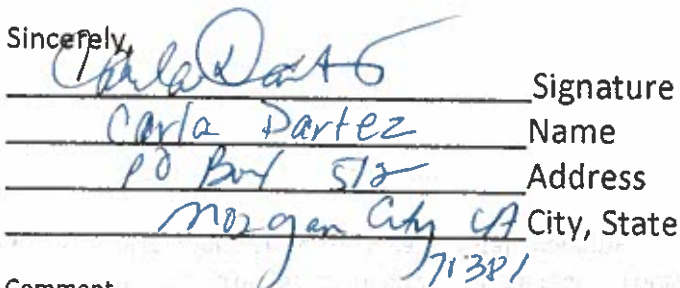 Sincerely,
Carla Dartez Signature
Carla Dartez Name
PO Box 512 Address
Morgan City LA City, State
71381
Comment